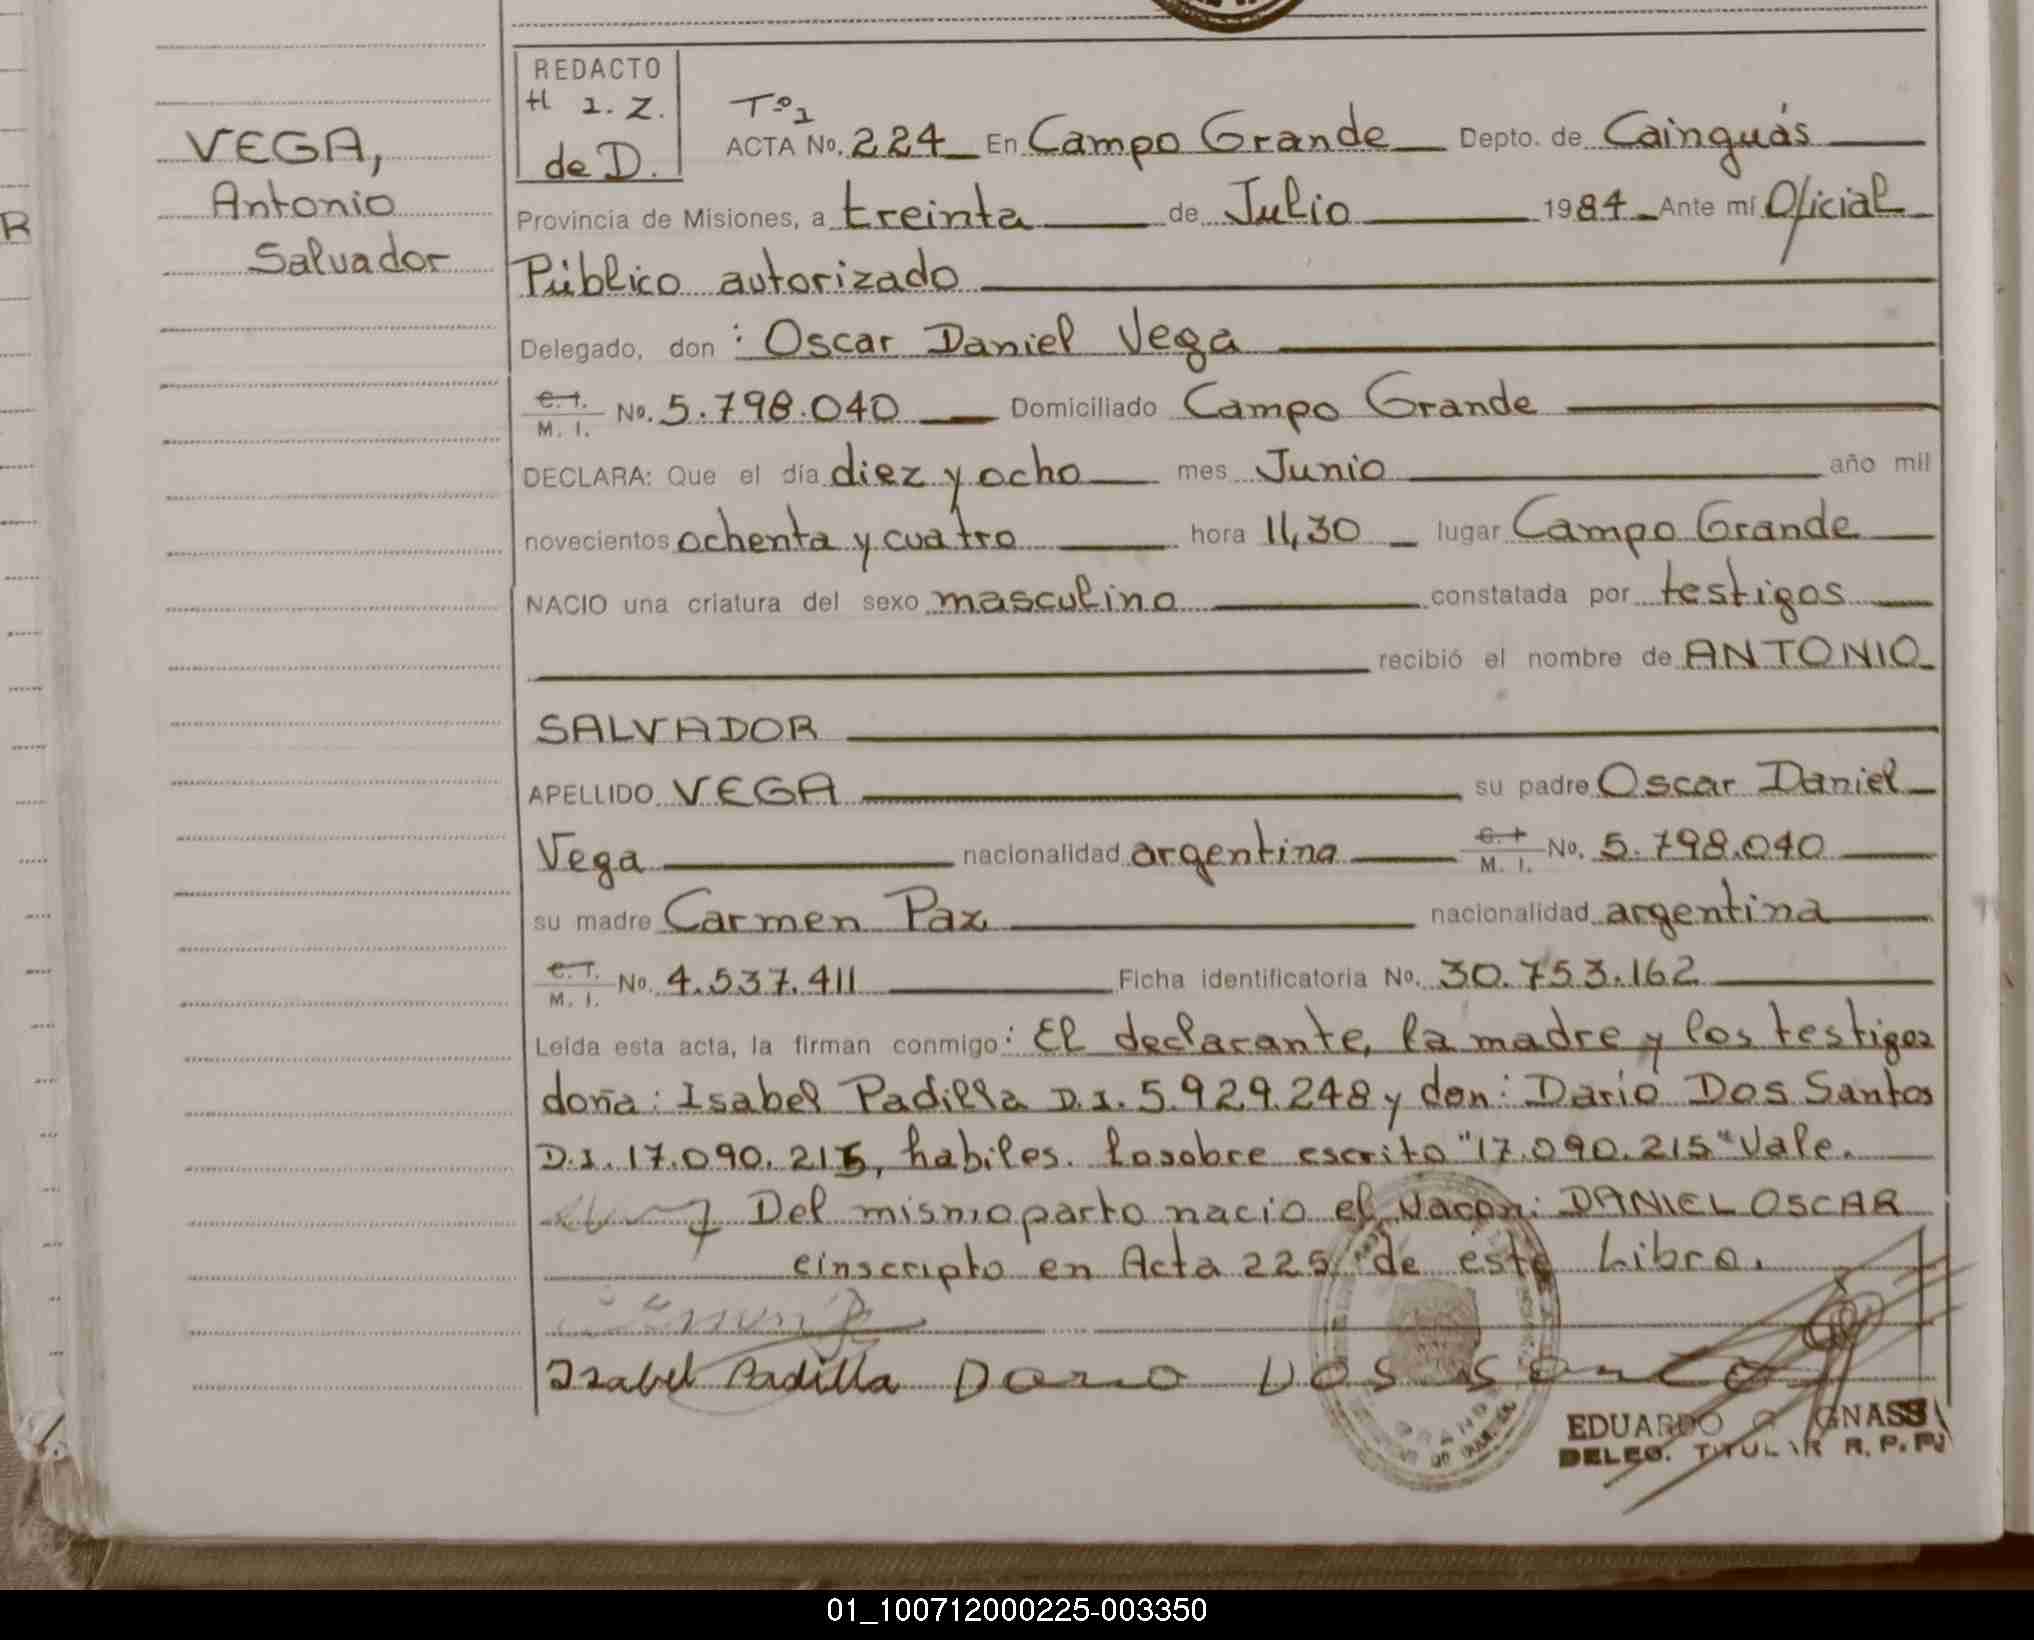 VEGA,
Antonio
Salvador
R
REDACTO
H 1. Z.
de D.
Tº1
ACTA No. 224 En Campo Grande Depto. de Cainguás
Provincia de Misiones, a treinta de Julio 1984 Ante mí Oficial
Público autorizado
Delegado, don : Oscar Daniel Vega
C. I. M. I. No. 5.798.040 Domiciliado Campo Grande
DECLARA: Que el día diez y ocho mes Junio año mil
novecientos ochenta y cuatro hora 11,30 lugar Campo Grande
NACIO una criatura del sexo masculino constatada por testigos
recibió el nombre de ANTONIO
SALVADOR
APELLIDO VEGA su padre Oscar Daniel
Vega nacionalidad argentina C. I. M. I. No. 5.798.040
su madre Carmen Paz nacionalidad argentina
C. I. M. I. No. 4.537.411 Ficha identificatoria No. 30.753.162
Leída esta acta, la firman conmigo: El declarante, la madre y los testigos
doña: Isabel Padilla D.I. 5.929.248 y don: Dario Dos Santos
D.I. 17.090.215, habiles. Lo sobre escrito "17.090.215" Vale.
Del mismo parto nacio el varon: DANIEL OSCAR
einscripto en Acta 225 de éste Libro.
Isabel Padilla Dario Dos Santos
EDUARDO GNASS
DELEG. TITULAR R. P. P.
01_100712000225-003350